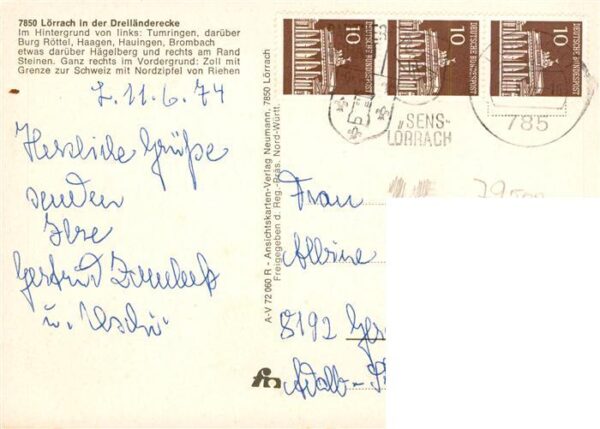 7850 Lörrach in der Dreiländerecke
Im Hintergrund von links: Tumringen, darüber
Burg Röttel, Haagen, Hauingen, Brombach
etwas darüber Hägelberg und rechts am Rand
Steinen. Ganz rechts im Vordergrund: Zoll mit
Grenze zur Schweiz mit Nordzipfel von Riehen
11.6.74
Herzliche Grüße
senden
Ihre
Gertrud
u. Uschi
A-V 72 060 R - Ansichtskarten-Verlag Neumann, 7850 Lörrach
Freigegeben d. Reg.-Präs. Nord-Württ.
DEUTSCHE BUNDESPOST
10
DEUTSCHE BUNDESPOST
10
DEUTSCHE BUNDESPOST
10
„SENS-
LÖRRACH
785
Frau
Albine
8192